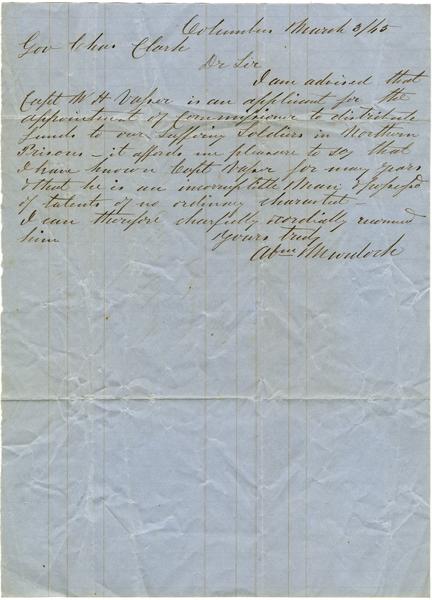 Columbus March 3/65
Gov Chas Clark
Dr Sir
I am advised that
Capt W H Vasser is an applicant for the
appointment of Commissioner to distribute
funds to our suffering Soldiers in Northern
Prisons – it affords me pleasure to say that
I have known Capt Vasser for many years
& that he is an incorruptible Man, &
of talents of no ordinary character
I can therefore cordially recommend
him
Yours truly
Abm Murdock